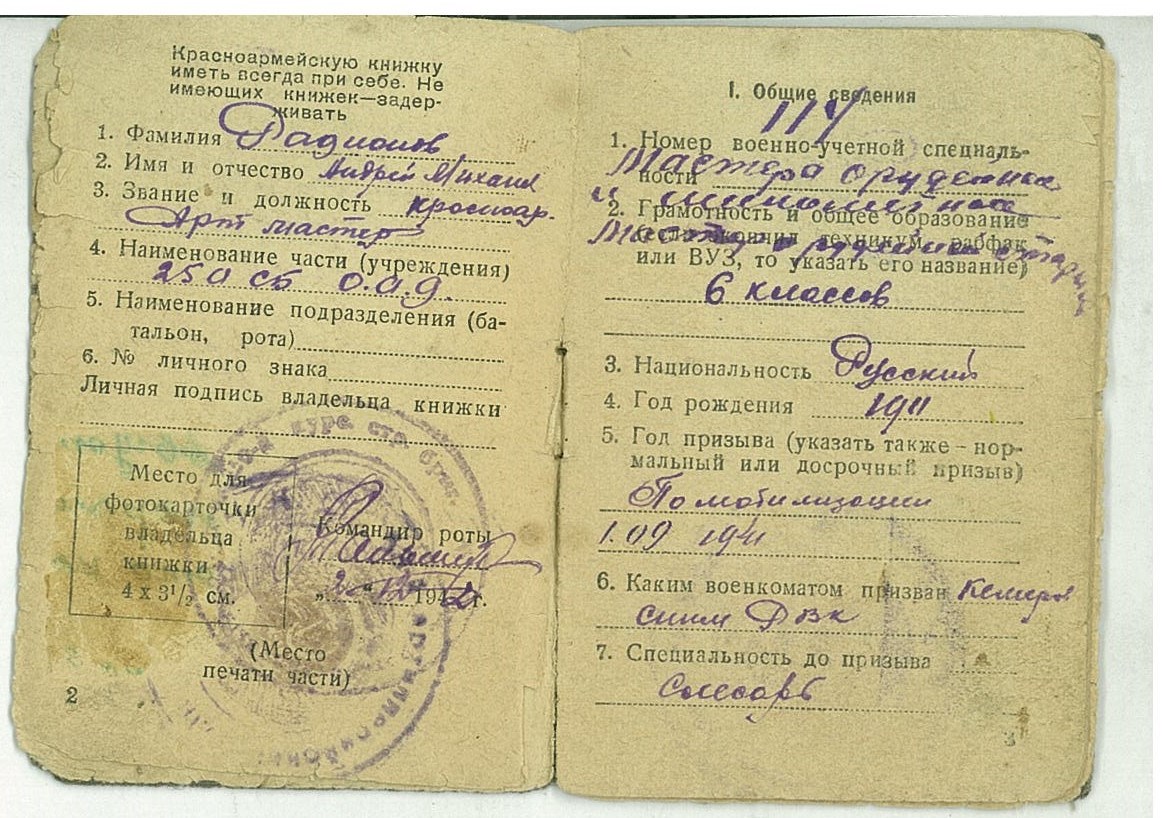 Красноармейскую книжку
иметь всегда при себе. Не
имеющих книжек—задер-
живать
1. Фамилия Радионов
2. Имя и отчество Андрей Михаил
3. Звание и должность красноар.
Арт мастер
4. Наименование части (учреждения)
250 сб О.а.д.
5. Наименование подразделения (ба-
тальон, рота)
6. № личного знака
Личная подпись владельца книжки
Место для
фотокарточки
владельца
книжки
4 x 3½ см.
Командир роты
„2“ 12 1942г.
(Место
печати части)
2
курс. стр. бриг.
артиллерийск
I. Общие сведения
114
1. Номер военно-учетной специаль-
ности
Мастера орудейные
и минометные
2. Грамотность и общее образование
(если окончил техникум, рабфак
или ВУЗ, то указать его название)
6 классов
3. Национальность Русский
4. Год рождения 1911
5. Год призыва (указать также – нор-
мальный или досрочный призыв)
По мобилизации
1.09 1941
6. Каким военкоматом призван Кемеров
ским РВК
7. Специальность до призыва
слесарь
3